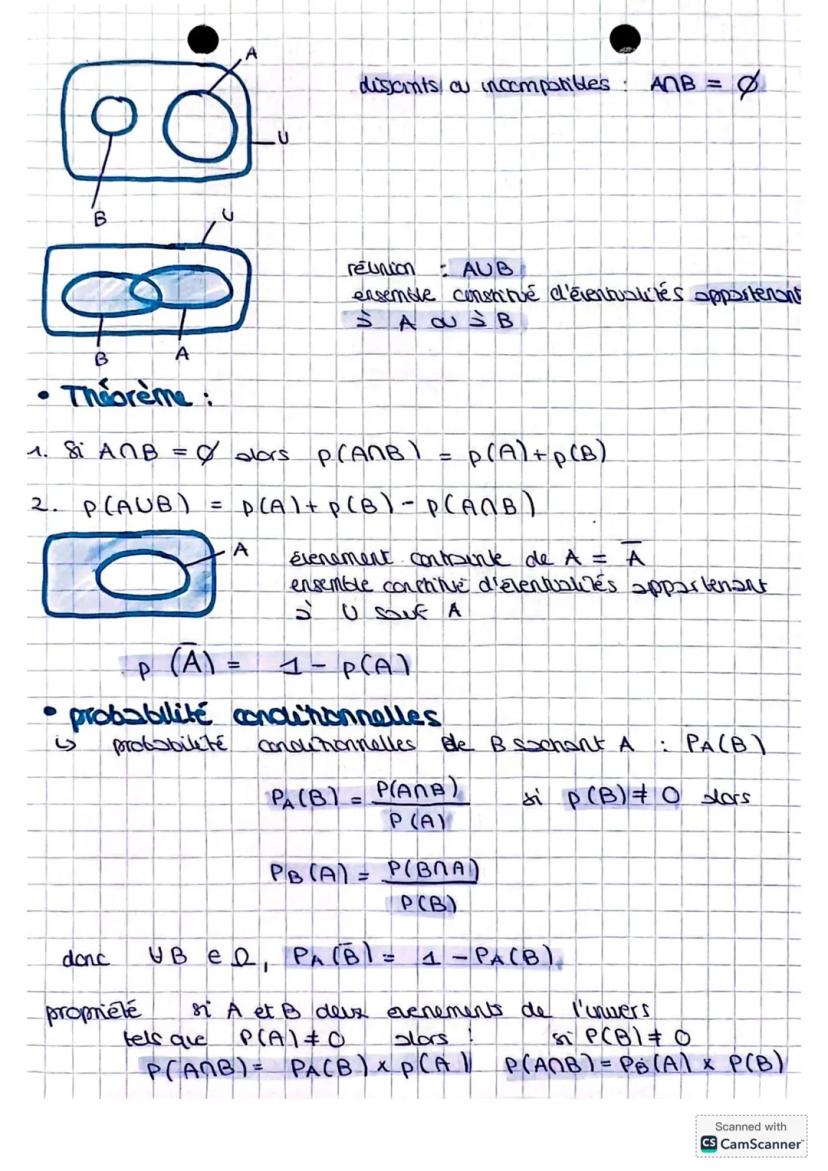 A
disjoints ou incompatibles : A∩B = ∅
U
B
U
réunion : A∪B
ensemble constitué d'éventualités appartenant
à A ou à B
B A
• Théorème :
1. Si A∩B = ∅ alors p(A∩B) = p(A)+p(B)
2. p(A∪B) = p(A)+p(B)-p(A∩B)
A
évenement contrainte de A = A̅
ensemble constitué d'éventualités appartenant
à U sauf A
p (A̅) = 1 - p(A)
• probabilité conditionnelles
↳ probabilité conditionnelles de B sachant A : PA(B)
PA(B) = P(A∩B) / P(A) si p(B) ≠ 0 alors
PB(A) = P(B∩A) / P(B)
donc ∀B ∈ Ω, PA(B̅) = 1 - PA(B)
propriété si A et B deux evenements de l'univers
tels que P(A) ≠ 0 alors : si P(B) ≠ 0
P(A∩B) = PA(B) x p(A) P(A∩B) = PB(A) x P(B)
Scanned with
CS CamScanner